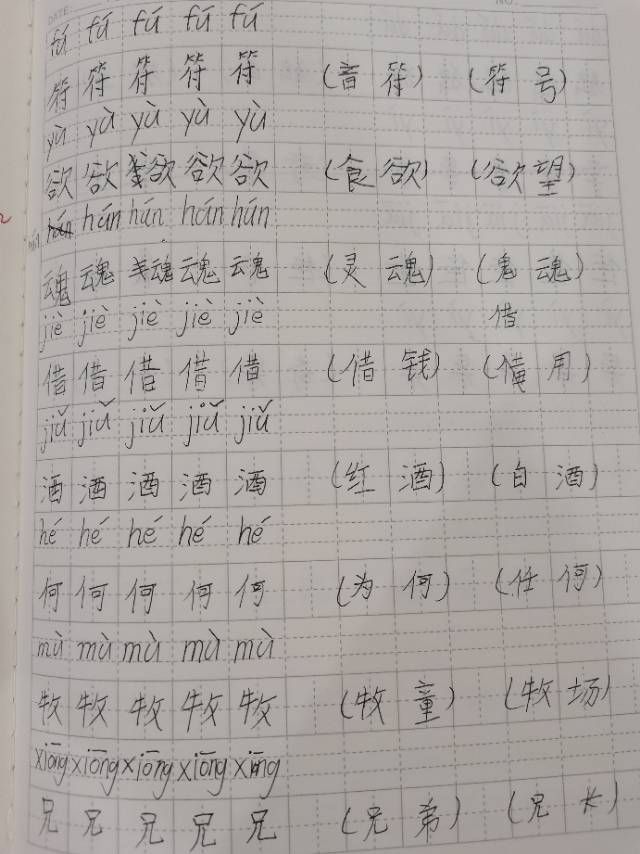 fú fú fú fú fú
符 符 符 符 符 (音 符) (符 号)
yù yù yù yù yù
欲 欲 欲 欲 欲 (食 欲) (欲 望)
hún hún hún hún
魂 魂 魂 魂 魂 (灵 魂) (鬼 魂)
jiè jiè jiè jiè jiè 借
借 借 借 借 借 (借 钱) (用)
jiǔ jiǔ jiǔ jiǔ jiǔ
酒 酒 酒 酒 酒 (红 酒) (白 酒)
hé hé hé hé hé
何 何 何 何 何 (为 何) (任 何)
mù mù mù mù mù
牧 牧 牧 牧 牧 (牧 童) (牧 场)
xiōng xiōng xiōng xiōng xiōng
兄 兄 兄 兄 兄 (兄 弟) (兄 长)